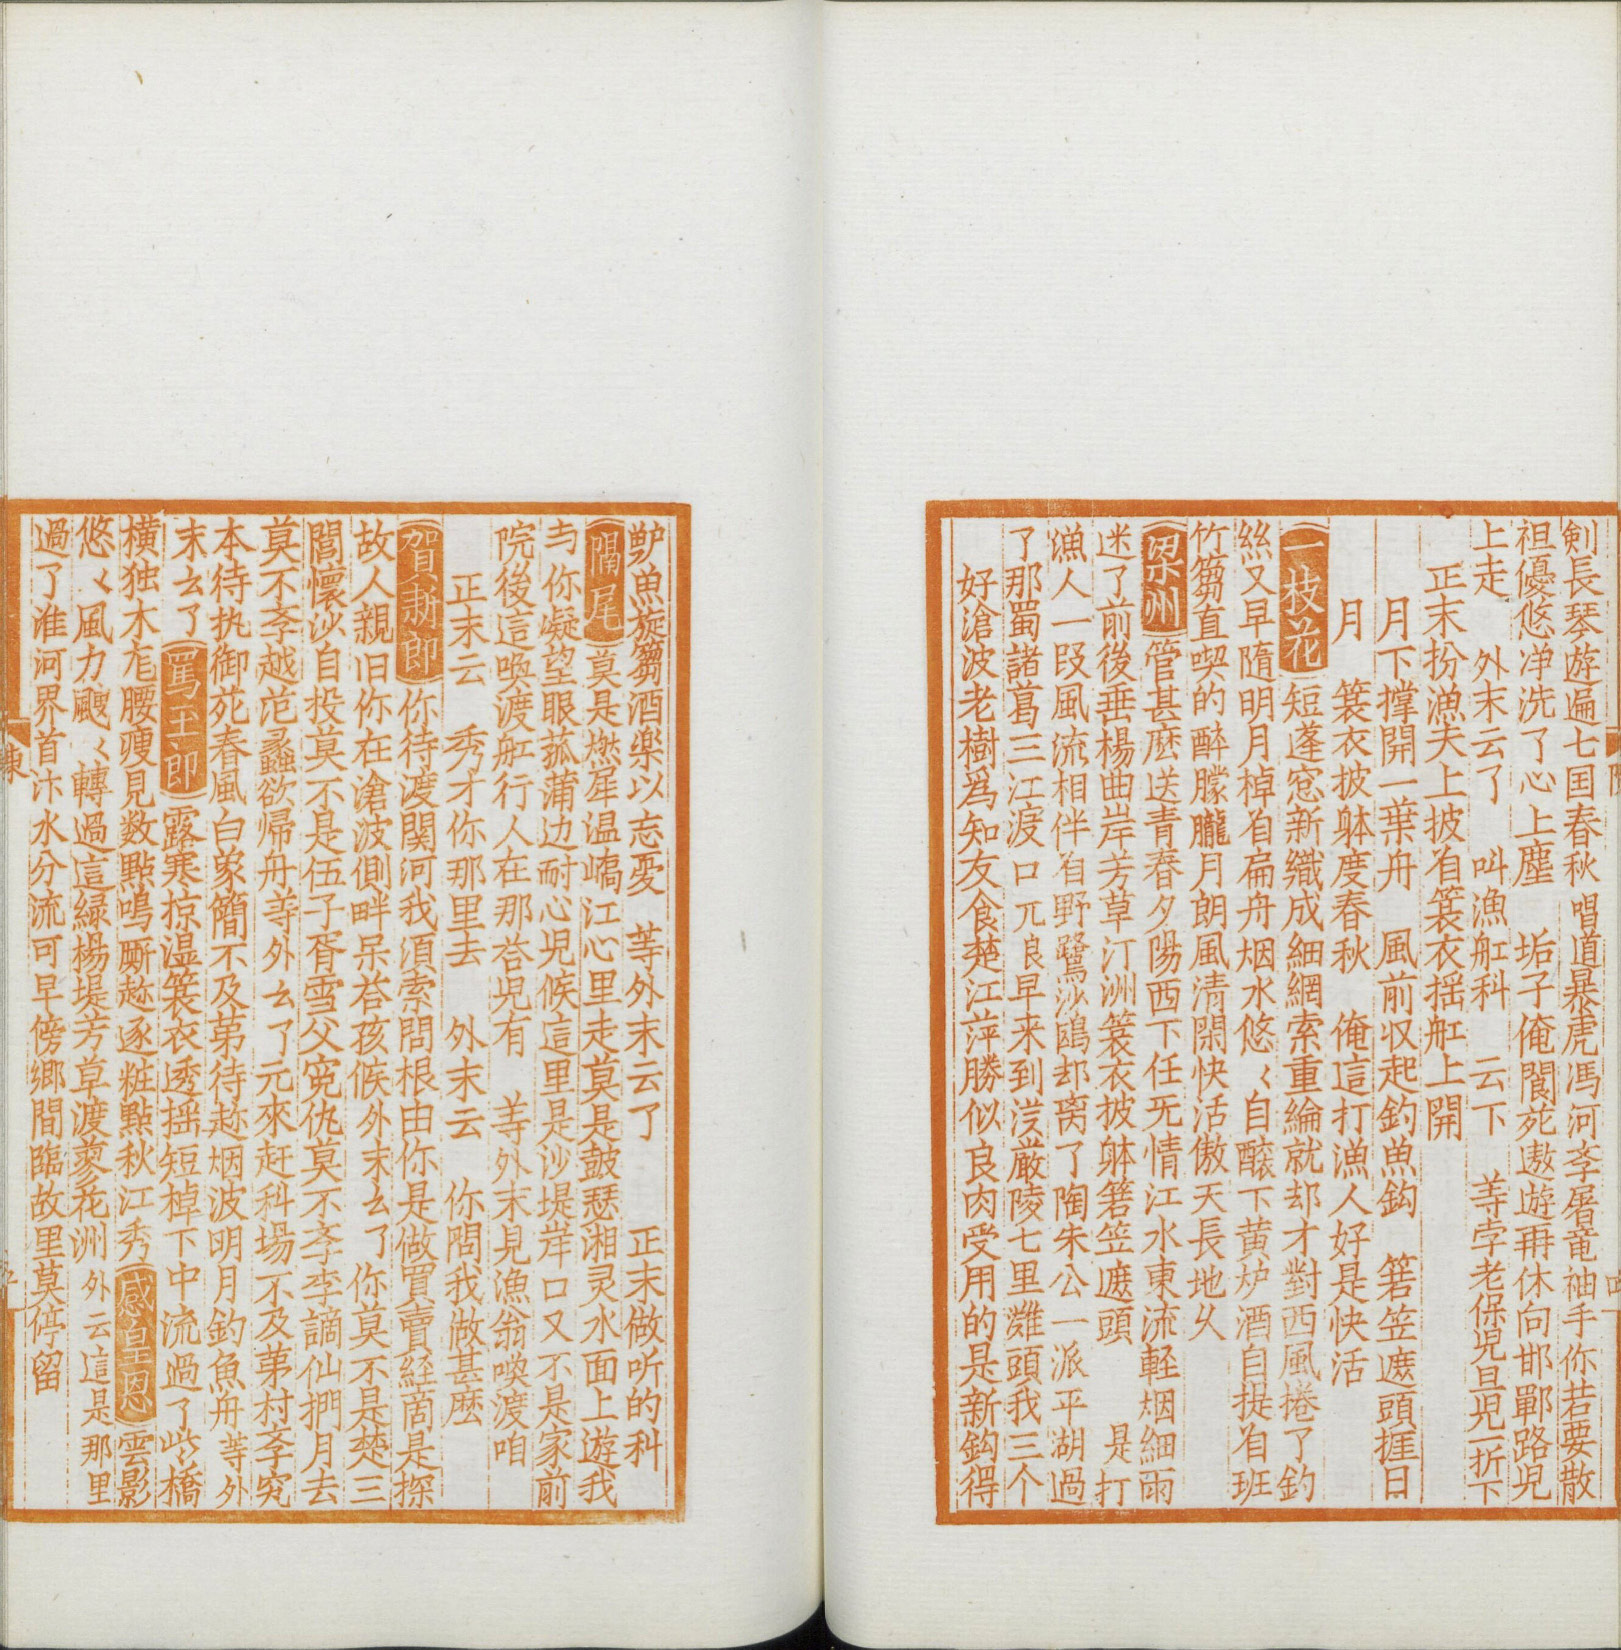 剣長琴遊遍七国春秋　唱道暴虎馮河斈屠竜袖手你若要散
袒優悠净洗了心上塵　垢子俺閬苑遨遊再休向邯鄲路児
上走　外末云了　叫漁舡科　云下　等孛老保児旦児一折下
正末扮漁夫上披着蓑衣揺舡上開
月下撑開一葉舟　風前収起釣魚鈎　箬笠遮頭捱日
月　蓑衣披躰度春秋　俺這打漁人好是快活
一枝花　短蓬窓新織成細網索重綸就却才對西風捲了釣
絲又早隋明月棹着扁舟烟水悠〻自醸下黄炉酒自提着班
竹篘直喫的醉朦朧月朗風清閑快活傲天長地久
梁州　管甚麽送青春夕陽西下任无情江水東流軽烟細雨
迷了前後垂楊曲岸芳草汀洲蓑衣披躰箬笠遮頭　是打
漁人一叚風流相伴着野鷺沙鷗却离了陶朱公一派平湖過
了那蜀諸葛三江渡口兀良早来到汉嚴陵七里灘頭我三个
好滄波老樹為知友食楚江萍勝似良肉受用的是新鈎得
鱸魚旋篘酒楽以忘憂　等外末云了　正末做听的科
隔尾　莫是燃犀温嶠江心里走莫是皷瑟湘灵水面上遊我
与你凝望眼菰蒲边耐心児候這里是沙堤岸口又不是家前
院後這喚渡舡行人在那荅児有　等外末見漁翁喚渡咱
正末云　秀才你那里去　外末云　你問我做甚麽
賀新郎　你待渡関河我須索問根由你是做買賣経商是探
故人親旧你在滄波側畔呆荅孩候外末云了你莫不是楚三
閭懐沙自投莫不是伍子胥雪父寃仇莫不斈李謫仙捫月去
莫不斈越范蠡欲帰舟等外云了元來赶科場不及苐村斈究
本待执御苑春風白象簡不及苐待趂烟波明月釣魚舟等外
末云了　罵玉郎　露寒掠湿蓑衣透揺短棹下中流過了此橋
横独木尨腰瘦見数點鳴嘶趂逐粧點秋江秀　感皇恩　雲影
悠〻風力颼〻轉過這緑楊堤芳草渡蓼花洲外云這是那里
過了淮河界首汴水分流可早傍鄉間臨故里莫停留